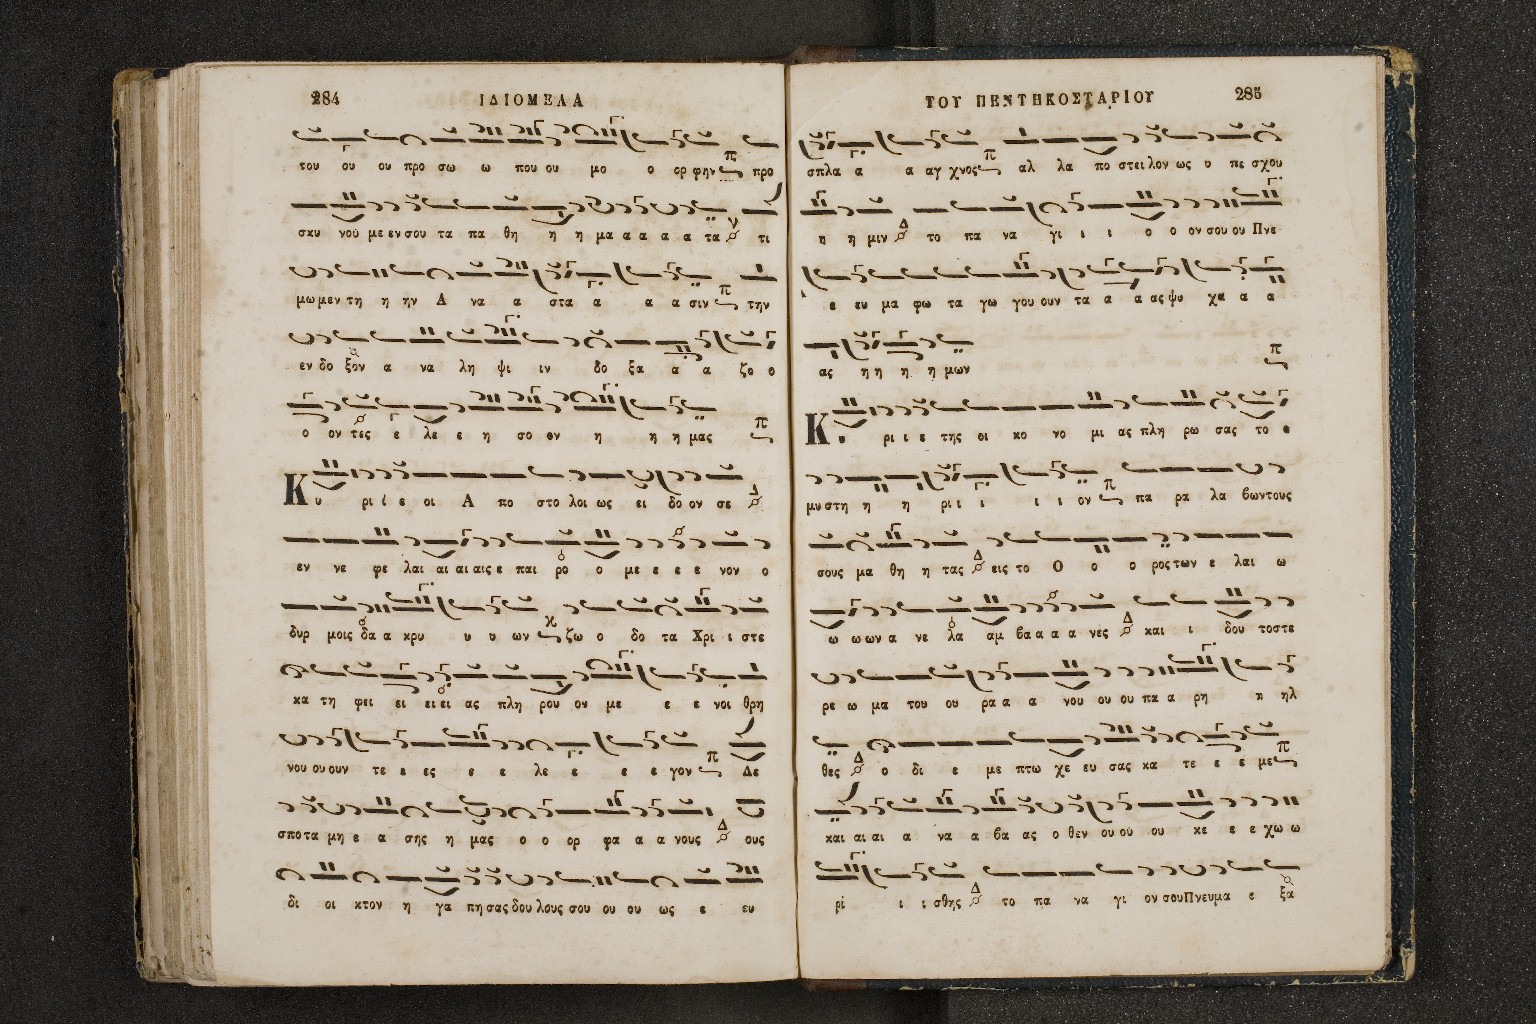 284 ΙΔΙΟΜΕΛΑ
του ου ου προ σω ω που ου μο ο ορ φην προ
σκυ νού με εν σου τα πα θη η η μα α α α α τα τι
μω μεν τη η ην Α να α στα α α α σιν την
εν δο ξον α να λη ψι ιν δο ξα α α ζο ο
ο ον τες ε λε ε η σο ον η η η μας
Κυ ρι ι ε οι Α πο στο λοι ως εί δο ον σε
εν νε φε λαι αι αι αις ε παι ρο ο με ε ε ε νον ο
δυρ μοις δα α κρυ υ υ ων ζω ο δο τα Χρι ι στε
κα τη φει ει ει ει ας πλη ρου ου με ε ε νοι θρη
νου ου ουν τε ε ες ε ε λε ε ε ε γον Δε
σπο τα μη ε α σης η μας ο ο ορ φα α α νους ους
δι οι κτον η γα πη σας δου λους σου ου ου ως ε ευ
ΤΟΥ ΠΕΝΤΗΚΟΣΤΑΡΙΟΥ 285
σπλα α α αγ χνος αλ λα πο στει λον ως υ πε σχου
η η μιν το πα να γι ι ι ο ο ον σου ου Πνε
ε ευ μα φω τα γω γου ουν τα α α ας ψυ χα α α
ας η η η η μων
Κυ ρι ι ε της οι κο νο μι ας πλη ρω σας το ο
μυ στη η η ρι ι ι ι ι ον πα ρα λα βων τους
σους μα θη η τας εις το Ο ο ο ρος των ε λαι ω
ω ω ων α νε λα αμ βα α α α νες και ι δου το στε
ρε ω μα του ου ρα α α νου ου ου πα α ρη η ηλ
θες ο δι ε με πτω χε ευ σας κα τε ε ε με
και αι αι α να α βα ας ο θεν ου ού ου κε ε ε χω ω
ρί ι ι σθης το πα να γι ον σου Πνευμα ε ξα